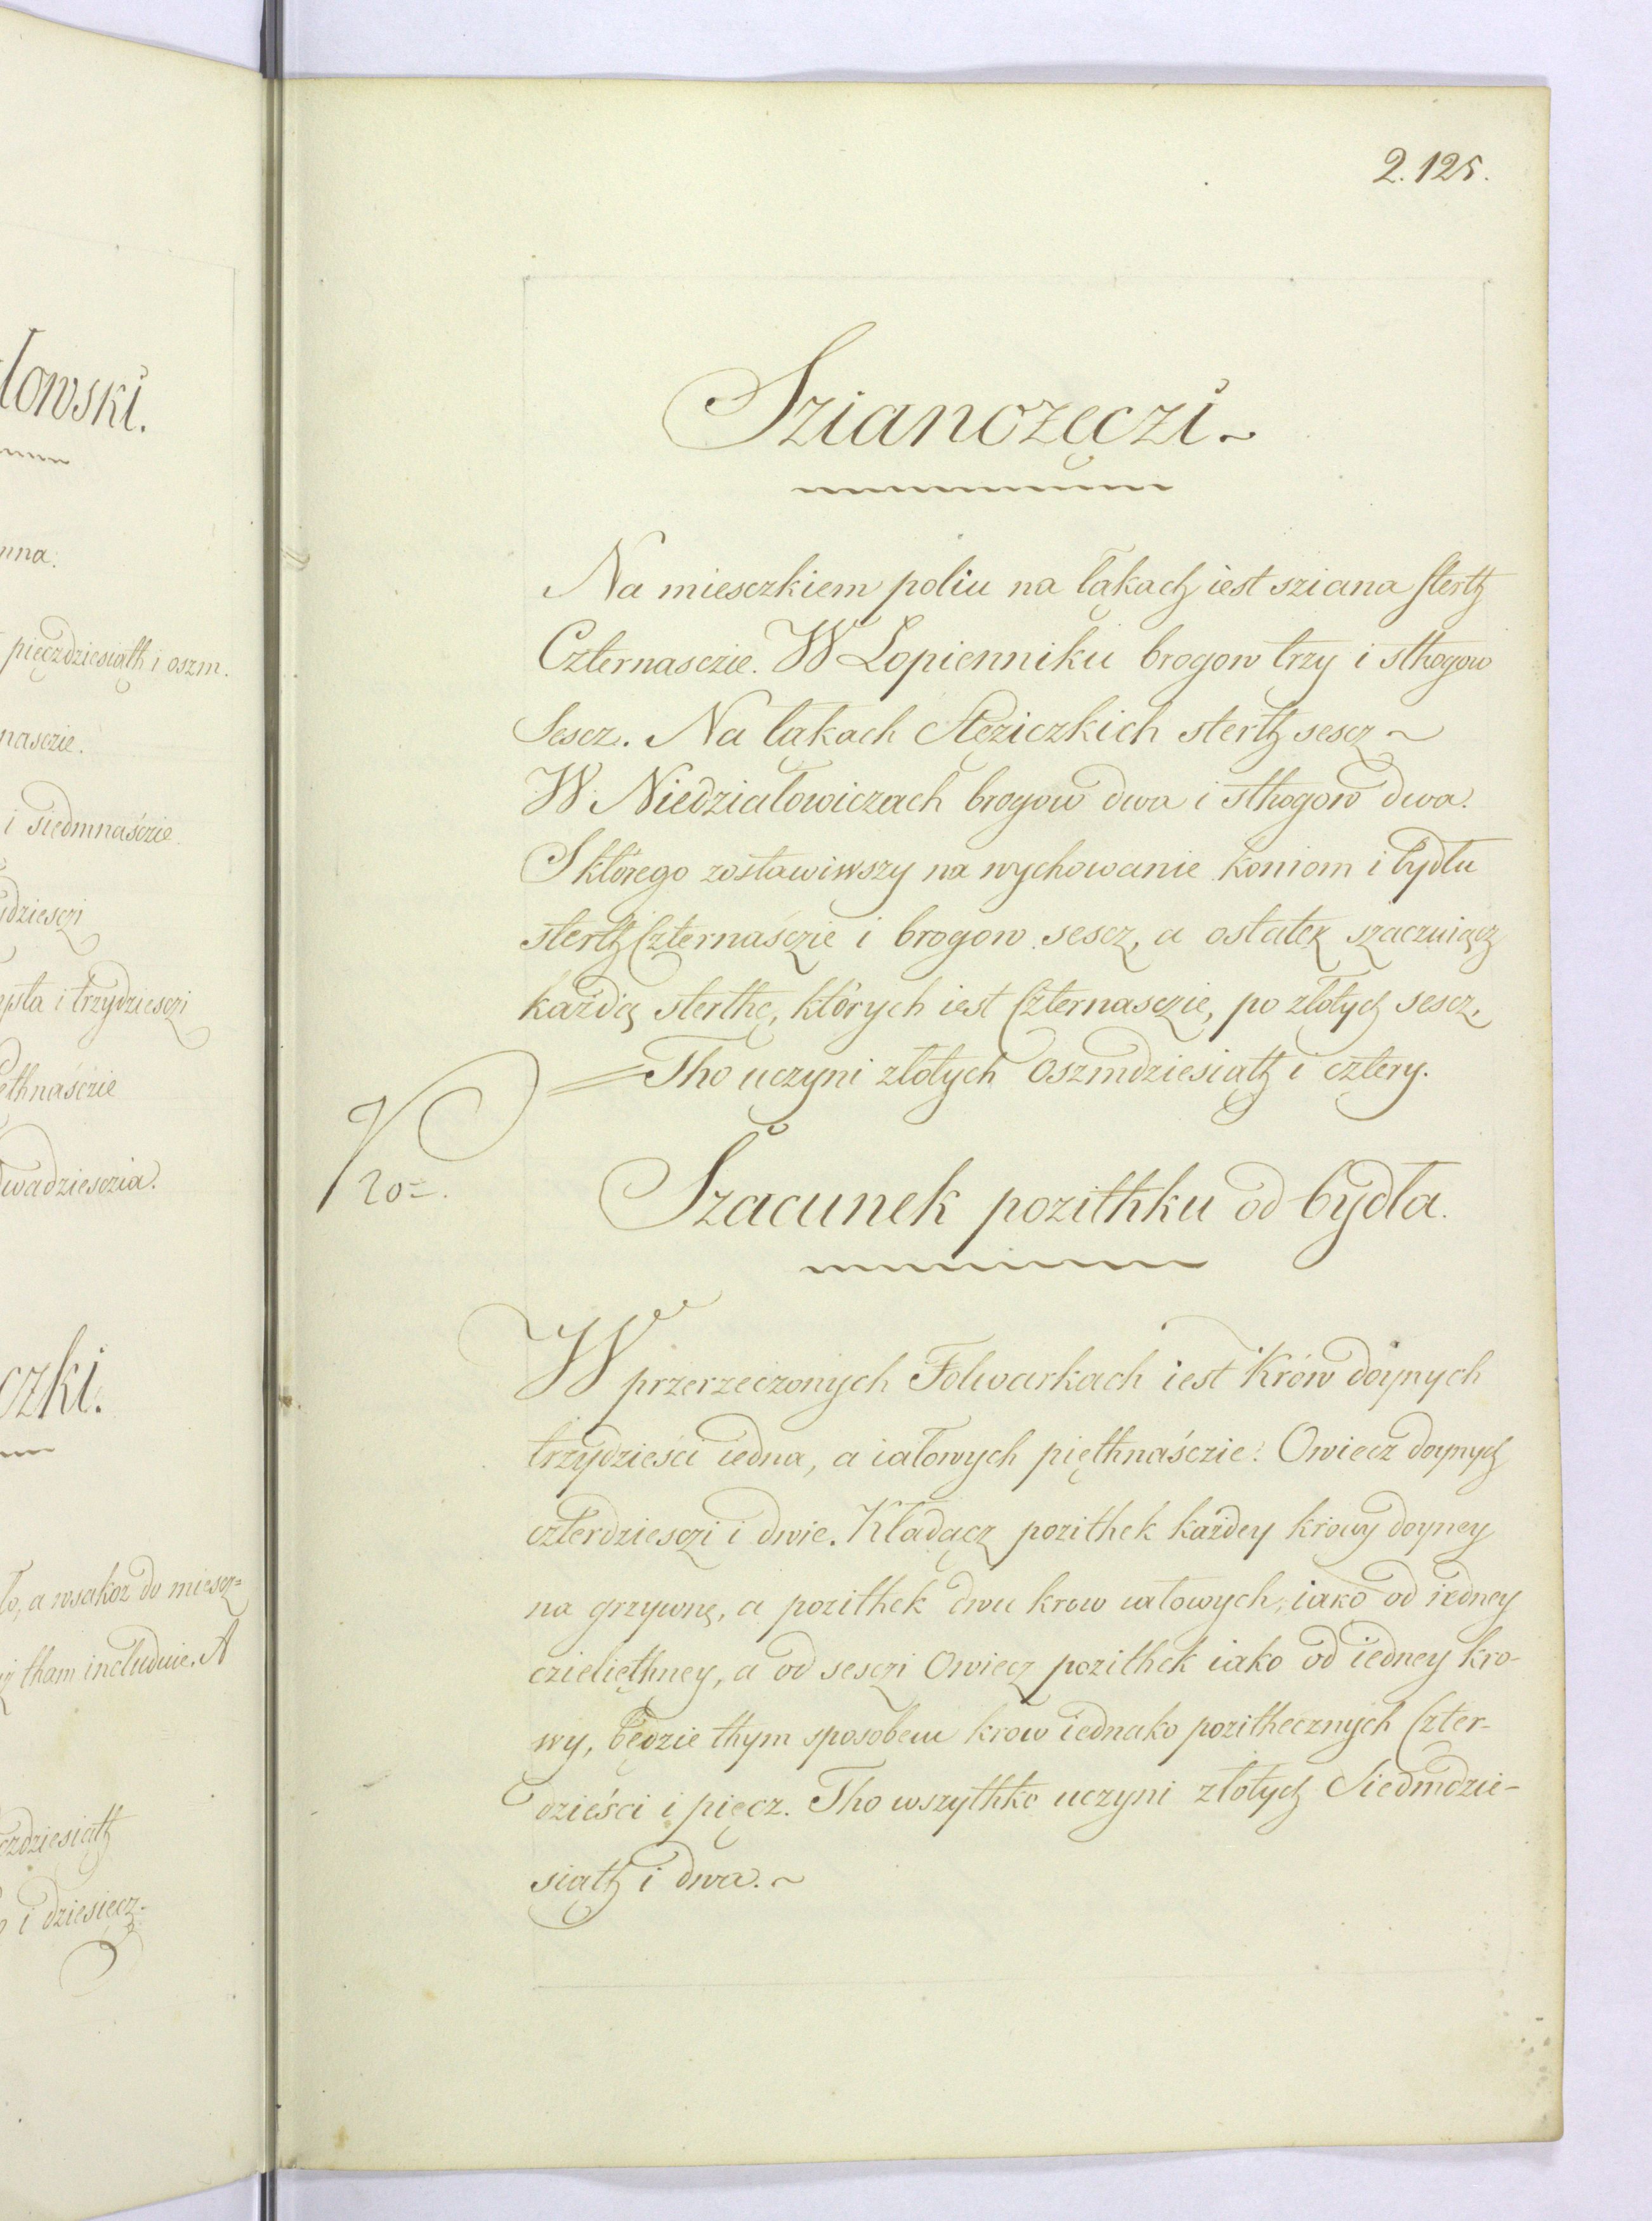 łowski.
mna.
pięczdziesiąth i oszm.
nasczie.
i siedmnaśczie
dziesczi
i trzydziesczi
ethnaśczie
wadziesczia.
czki.
ło, a wsakoz do miescz=
tham includuie. A
czdziesiąth
i dziesięcz.
2. 125.
Szianozęczi ~
Na miesczkiem poliu na łąkach iest sziana sterth
Czternasczie. W Lopienniku brogow trzy i sthogow
Sescz. Na łąkach Stęziczkich sterth sescz ~
W Niedziałowiczach brogow dwa i sthogow dwa.
S którego zostawiwszy na wychowanie koniom i bydłu
sterth Czternaśczie i brogow sescz, a ostatek szaczuiącz
każdą sterthę, których iest Czternasczie, po złotych sescz,
Tho uczyni złotych oszmdziesiąth i cztery.
20=.
Szacunek pozithku od bydła.
W przerzeczonych Folwarkach iest Krów doynych
trzydzieści iedna, a iałowych pięthnaśczie. Owiecz doynych
czterdziesczi i dwie. Kładącz pozithek każdey krowy doyney
na grzywnę, a pozithek dwu krow iałowych, iako od iedney
czielięthney, a od sesczi Owiecz pozithek iako od iedney kro-
wy, będzie thym sposobem krow iednako pozithecznych Czter-
dzieści i pięcz. Tho wszythko uczyni złotych Siedmdzie-
siąth i dwa. ~